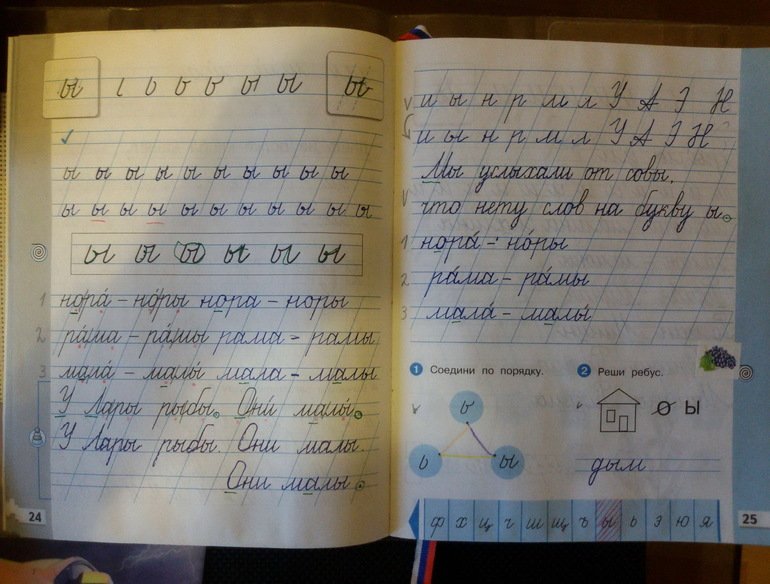 ы ι ь ь ь ы ы ы
ы ы ы ы ы ы ы ы ы ы
ы ы ы ы ы ы ы ы ы ы ы
ы ы ы ы ы ы
1 нора́ – но́ры нора – норы
2 ра́ма – ра́мы рама – рамы
3 мала́ – малы́ мала – малы
У Лары рыбы. Они́ малы́.
У Лары рыбы. Они малы.
Они малы.
24
и ы н р м л У А З Н
и ы н р м л У А З Н
Мы услыхали от совы,
что нету слов на букву ы.
1 нора́ – но́ры
2 ра́ма – ра́мы
3 мала́ – малы́
1 Соедини по порядку.
2 Реши ребус.
ь ь ы
о ы
дым
ф х ц ч ш щ ъ ы ь э ю я
25